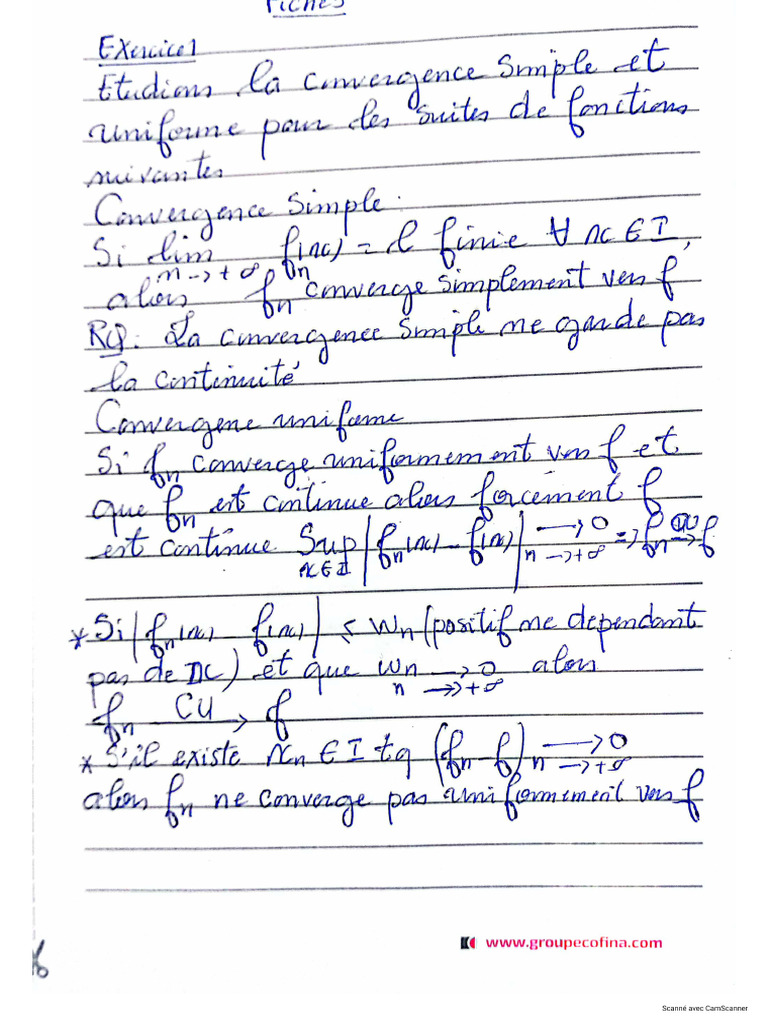 Fiche 3
Exercice 1
Etudions la convergence simple et
uniforme pour les suites de fonctions
suivantes
Convergence simple.
Si lim fn(x) = l finie ∀ x ∈ I,
n → +∞
alors fn converge simplement vers f
RQ: La convergence simple ne garde pas
la continuité
Convergene uniforme
Si fn converge uniformement vers f et
que fn est continue alors forcément f
est continue Sup |fn(x) - f(x)| → 0 => fn CU→ f
x∈I n → +∞
* Si |fn(x) - f(x)| < Wn (positif ne dependant
pas de x) et que Wn → 0 alors
n → +∞
fn CU→ f
* S'il existe xn ∈ I tq (fn - f)n → 0
n → +∞
alors fn ne converge pas uniformement vers f
www.groupecofina.com
Scanné avec CamScanner